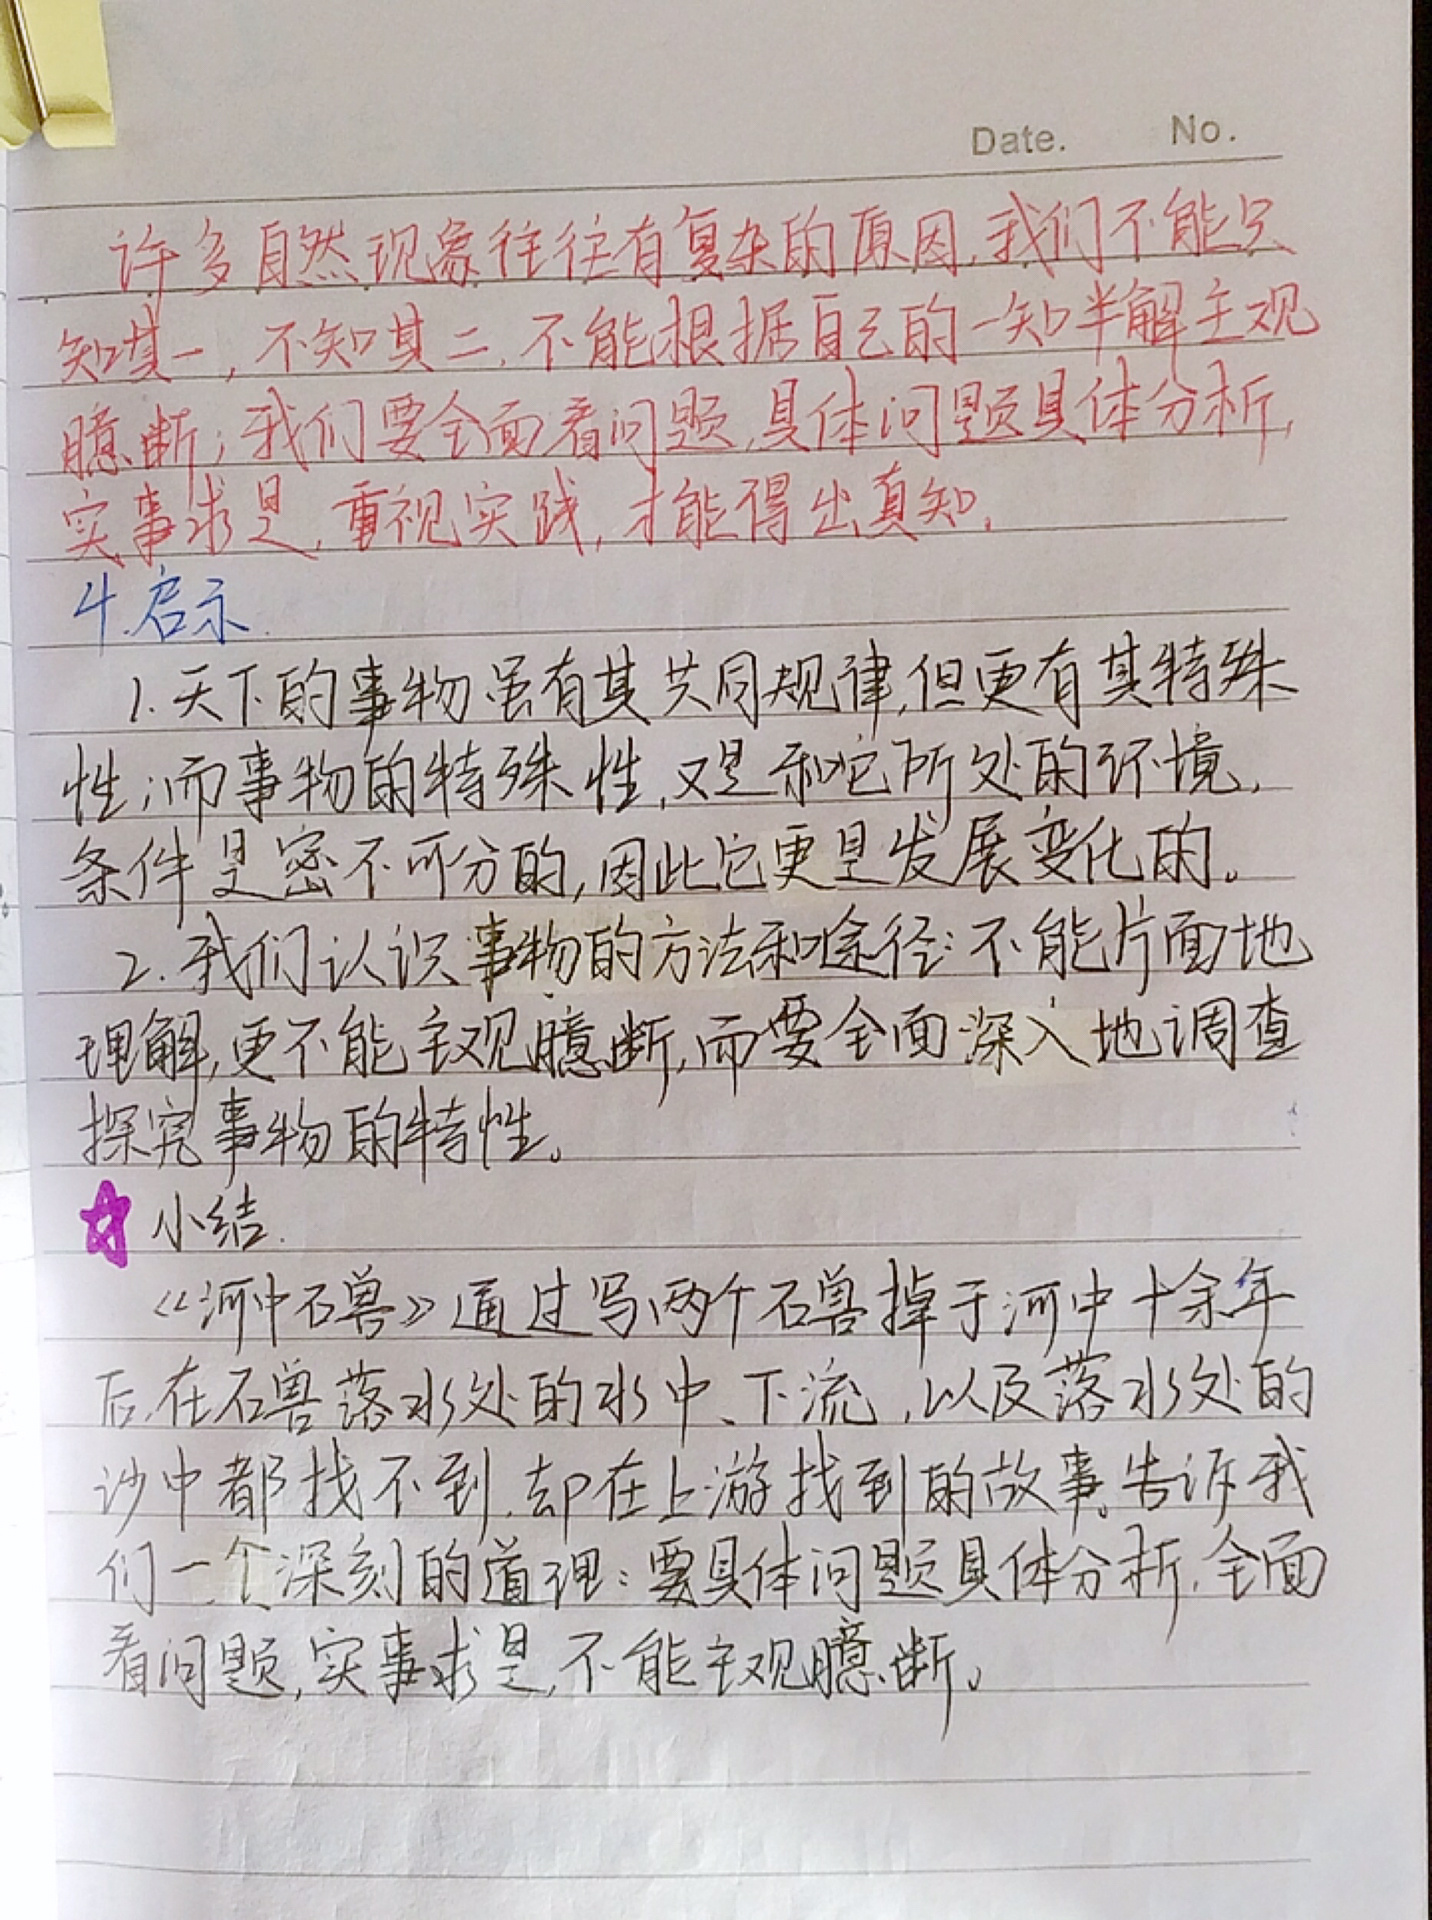 Date. No.
许多自然现象往往有复杂的原因,我们不能只
知其一,不知其二,不能根据自己的一知半解主观
臆断;我们要全面看问题,具体问题具体分析,
实事求是,重视实践,才能得出真知。
4.启示.
1.天下的事物虽有其共同规律,但更有其特殊
性;而事物的特殊性,又是和它所处的环境,
条件是密不可分的,因此它更是发展变化的。
2.我们认识事物的方法和途径:不能片面地
理解,更不能主观臆断,而要全面深入地调查
探究事物的特性。
小结.
《河中石兽》通过写两个石兽掉于河中十余年
后,在石兽落水处的水中、下流,以及落水处的
沙中都找不到,却在上游找到的故事,告诉我
们一个深刻的道理:要具体问题具体分析,全面
看问题,实事求是,不能主观臆断。